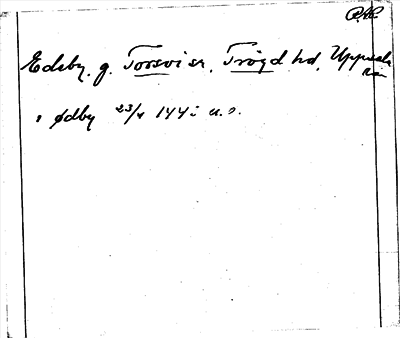 Edeby, g. Torsvi sn, Trögd hd, Uppsala
län
ødby 23/4 144 u. s.